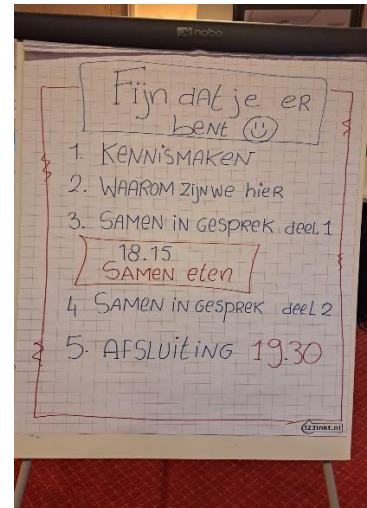 nobo
Fijn dAt je ER
beNt
1. KeNNiSMAKeN
2. WAAROM zijN we hieR
3. SAMeN iN GeSPReK deeL 1
18.15
SAMeN eten
4 SAMeN iN GeSPReK deeL 2
5. AFSLUiTiNG 19.30
123inkt.nl